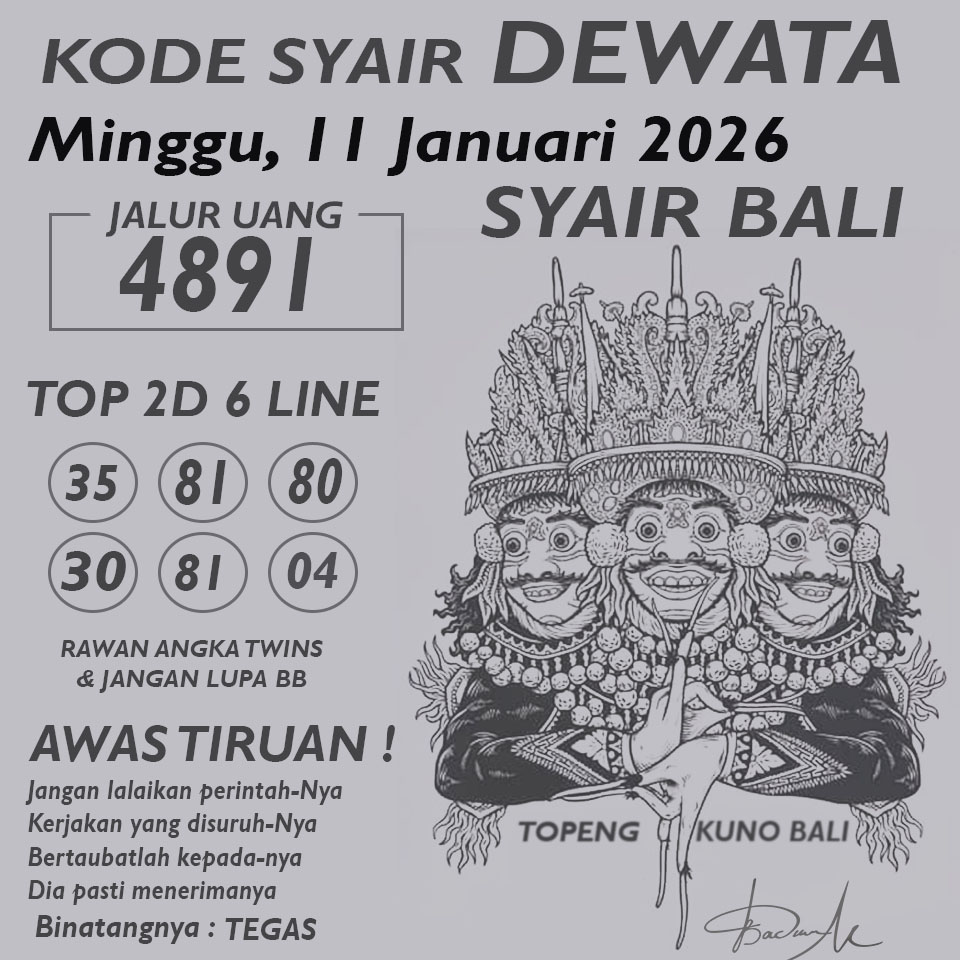 KODE SYAIR DEWATA
Minggu, 11 Januari 2026
SYAIR BALI
JALUR UANG
4891
TOP 2D 6 LINE
35 81 80
30 81 04
RAWAN ANGKA TWINS
& JANGAN LUPA BB
AWAS TIRUAN !
Jangan lalaikan perintah-Nya
Kerjakan yang disuruh-Nya
Bertaubatlah kepada-nya
Dia pasti menerimanya
Binatangnya : TEGAS
TOPENG KUNO BALI